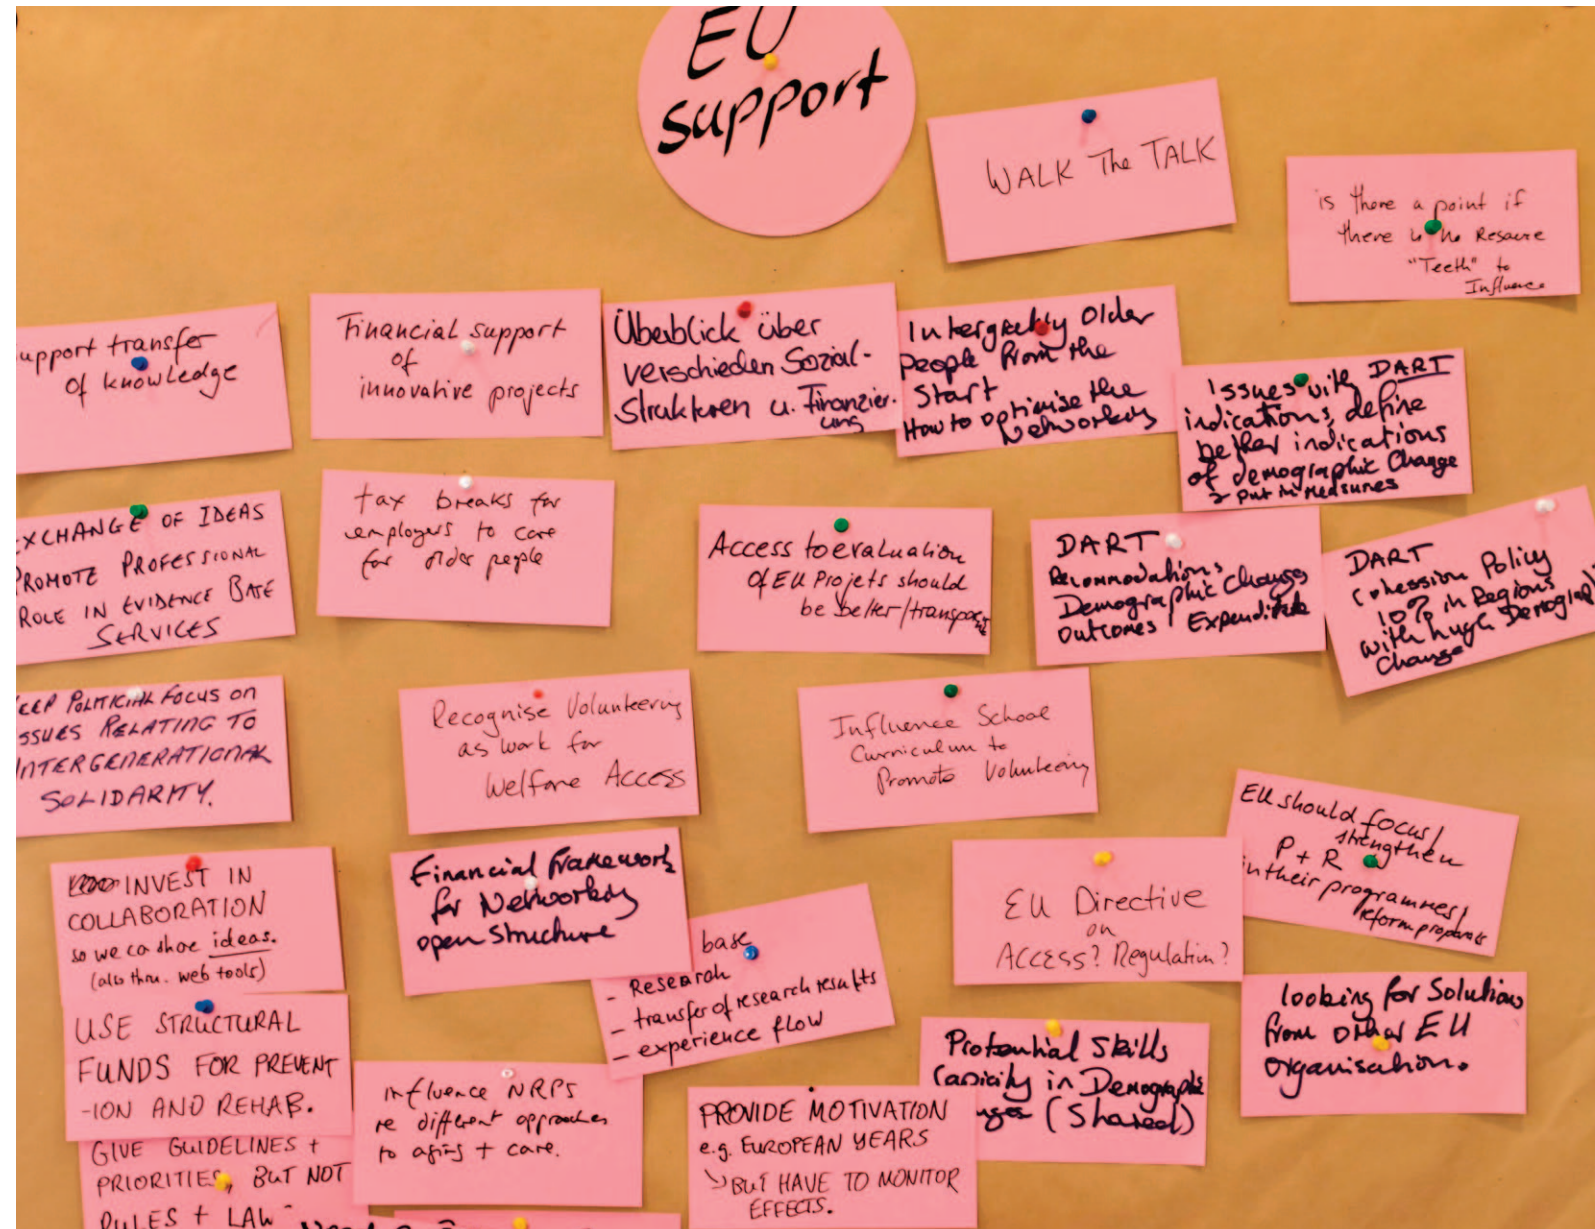 EU
support
WALK The TALK
is there a point if
there is no Resource
"Teeth" to
Influence
upport transfer
of knowledge
Financial support
of
innovative projects
Überblick über
verschieden Sozial-
strukturen u. Finanzier-
ung
Intergrating Older
people from the
Start
How to optimise the
Networking
Issues with DART
indications, define
better indications
of demographic Change
& put in measures
XCHANGE OF IDEAS
PROMOTE PROFESSIONAL
ROLE IN EVIDENCE BASE
SERVICES
tax breaks for
employers to care
for older people
Access to evaluation
of EU Projets should
be better/transpa
DART
Recommodations
Demographic Changes
Outcomes / Expenditure
DART
Cohession Policy
10% in Regions
with hugh Demograp
Change
EEP POLITICIAL FOCUS on
SSUES RELATING TO
INTERGENERATIONAL
SOLIDARITY.
Recognise Volunteering
as work for
Welfare Access
Influence School
Curriculum to
Promote Volunteering
EU should focus/
strengthen
P + R
in their programmes/
reform proposals
INVEST IN
COLLABORATION
so we can share ideas.
(also thru. web tools)
Financial Framework
for Networking
open structure
base
- Research
- transfer of research results
- experience flow
EU Directive
on
ACCESS? Regulation?
looking for Solutions
from other EU
organisation.
USE STRUCTURAL
FUNDS FOR PREVENT
-ION AND REHAB.
Influence NRPS
re different approaches
to aging + care.
Protential Skills
Capicity in Demographi
nges (Shared)
PROVIDE MOTIVATION
e.g. EUROPEAN YEARS
↳ BUT HAVE TO MONITOR
EFFECTS.
GIVE GUIDELINES +
PRIORITIES, BUT NOT
RULES + LAW